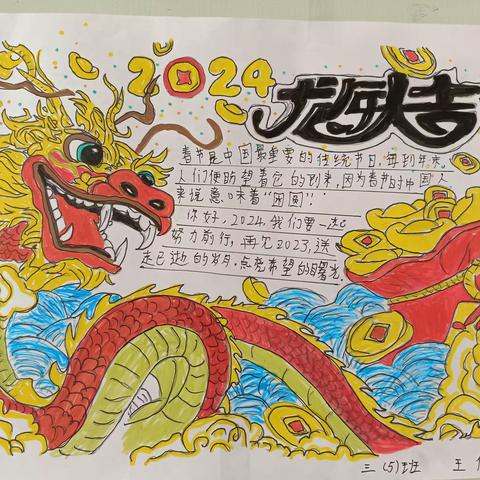 2024
龙年大吉
春节是中国最重要的传统节日,每到年末,
人们便盼望着它的到来,因为春节时中国人
来说意味着“团圆”!
你好,2024,我们要一起
努力前行,再见2023,送
走已逝的岁月.点亮希望的曙光.
三(5)班 王